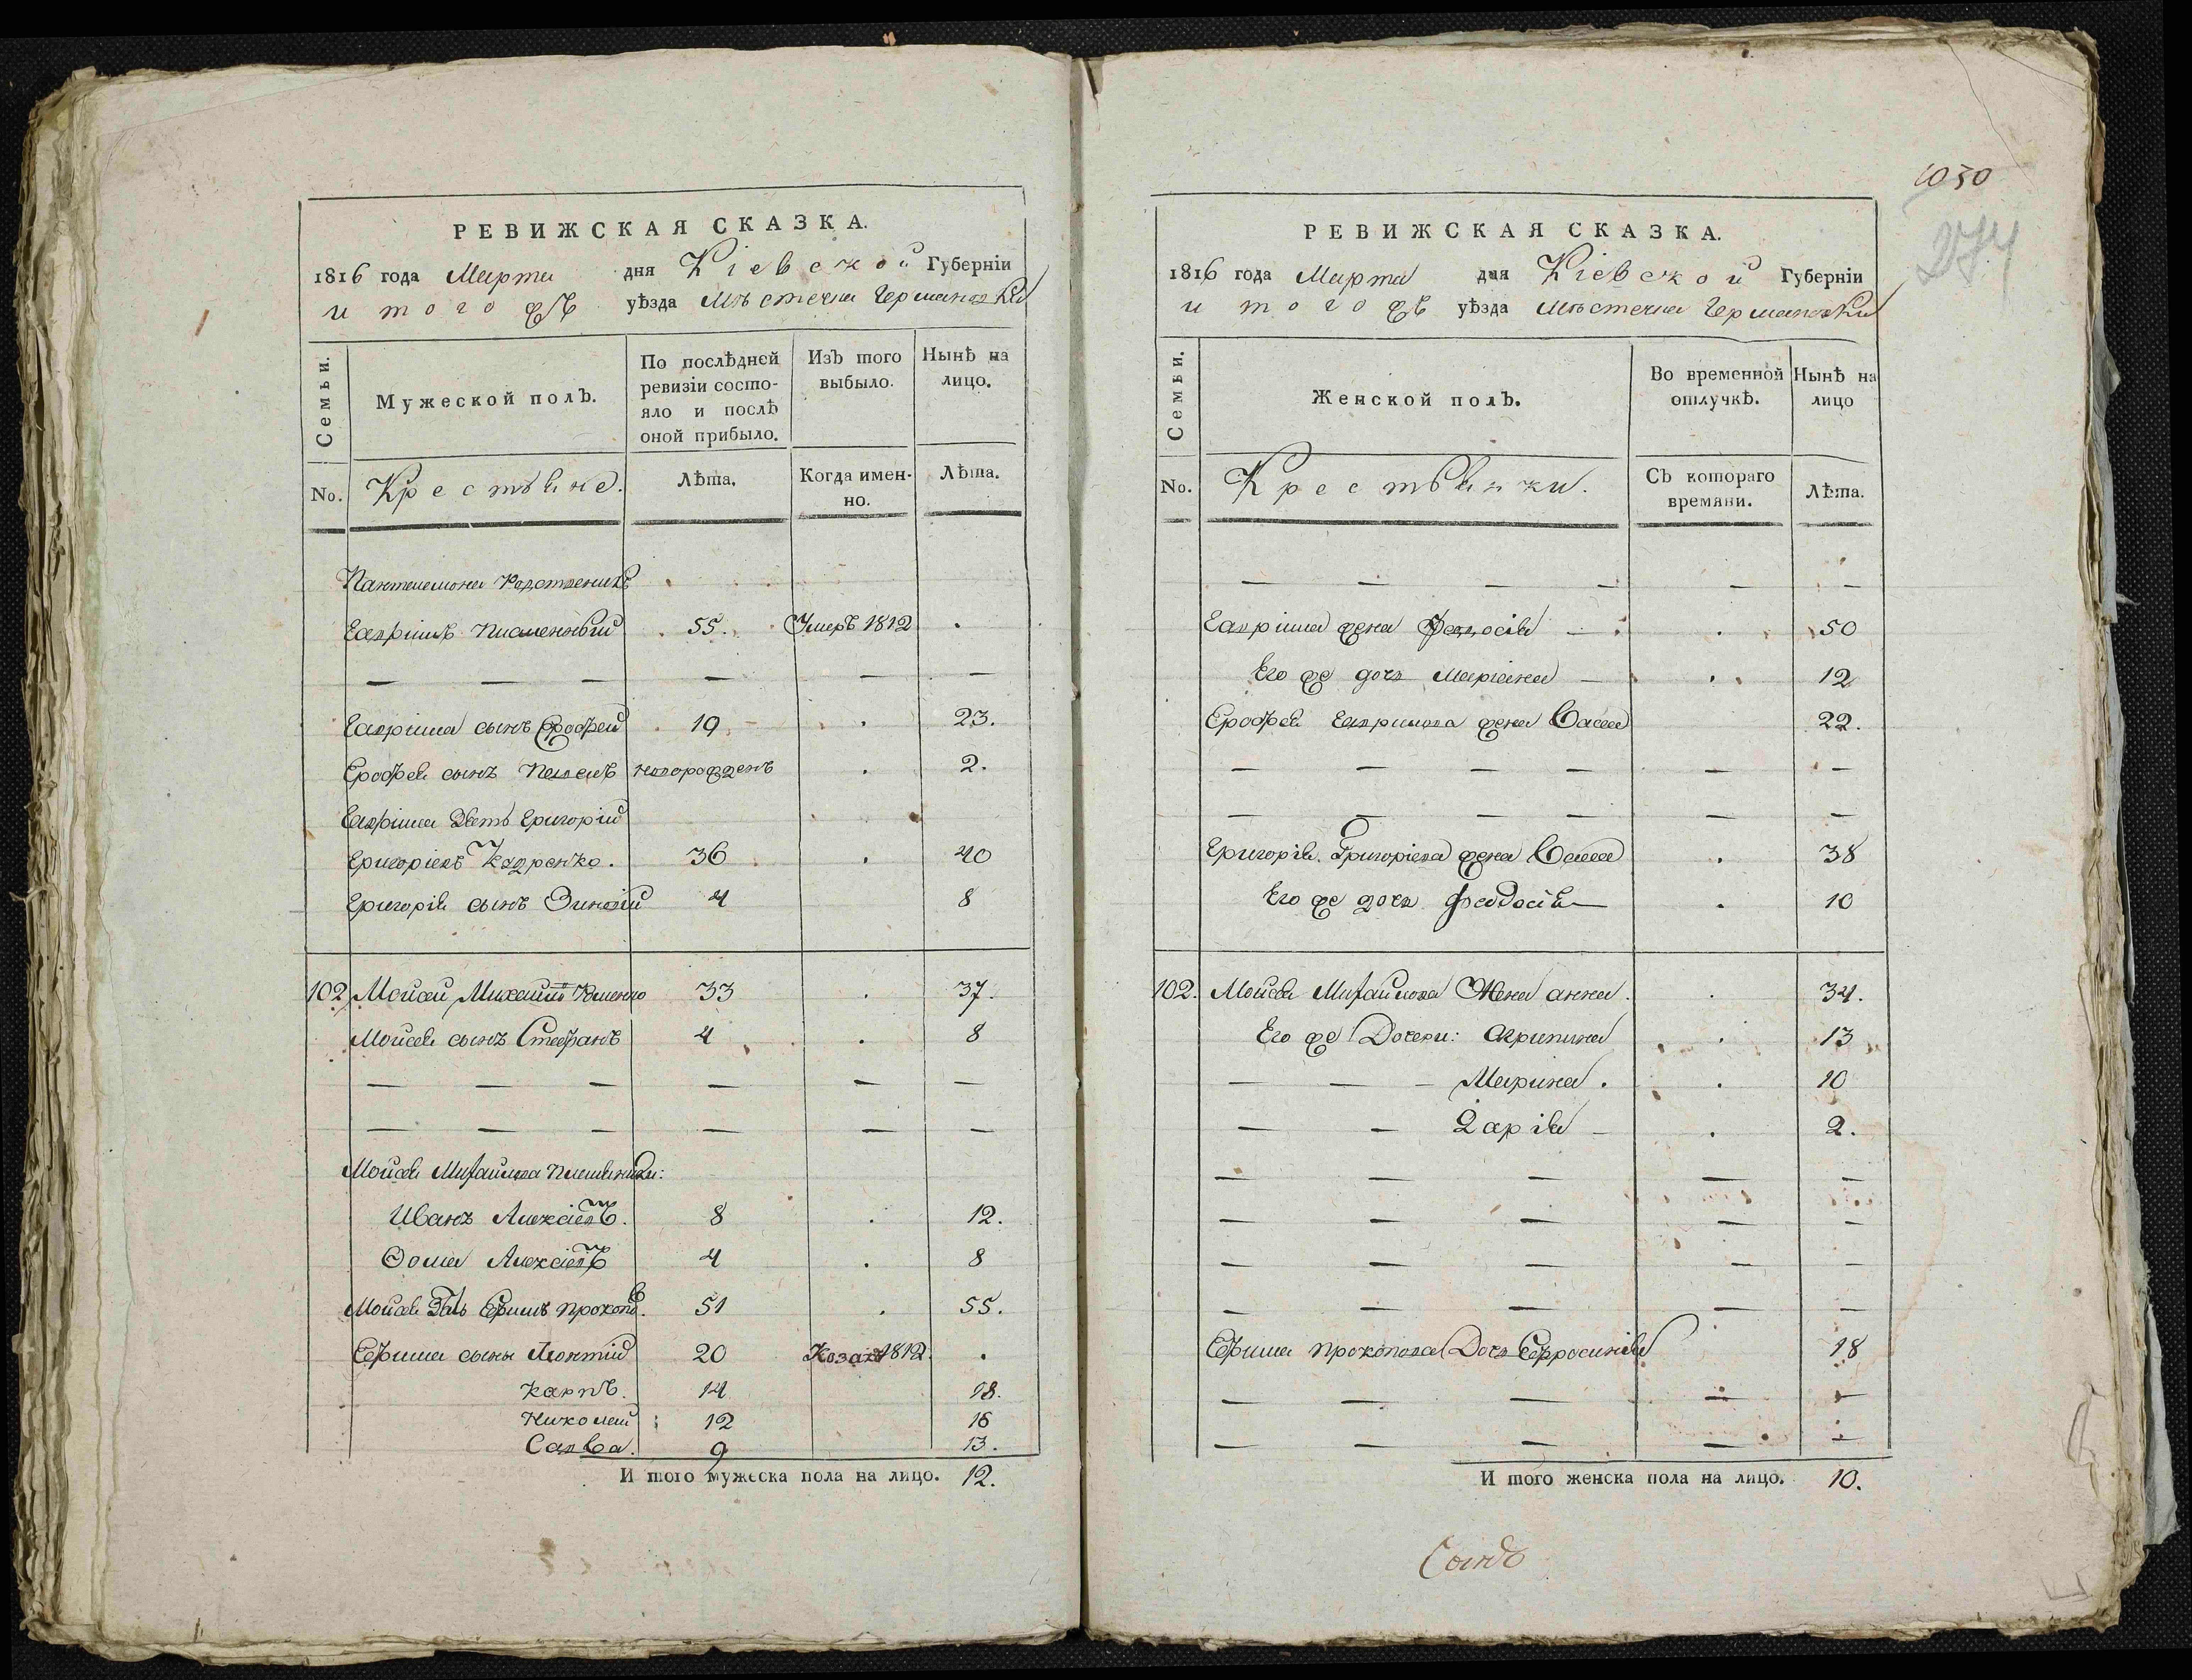 РЕВИЖСКАЯ СКАЗКА.
1816 года Марта дня Кіевской Губерніи
и того жъ уѣзда мѣстечка Германовки
Семьи.
Мужеской полъ.
По послѣдней ревизіи состо-
яло и послѣ оной прибыло.
Изъ того выбыло.
Нынѣ на лицо.
No.
Крестьяне.
Лѣта.
Когда имен-
но.
Лѣта.
Пантелемона родственикъ
Гаврiилъ Писменный 55. Умеръ 1812 .
— — — — — —
Гаврiила сынъ Ерофей 19 . 23.
Ерофея сынъ Павелъ новорожденъ . 2.
Гаврiила Зеть Григорій
Григоріевъ 36 . 40
Григорія сынъ Зиновій 4 8
102 Мойсей Михайловъ 33 . 37.
Мойсея сынъ Стефанъ 4 . 8
— — — — — —
— — — — — —
Мойсея Михайлова племяники:
Иванъ Алексіевъ. 8 . 12.
Ѳома Алексіевъ 4 . 8
Мойсея Зять Ефимъ Прокоповъ. 51 . 55.
Ефима сыны Леонтій 20 Козакъ 1812. .
Карпъ. 14 18.
Николай 12 16
Савва. 9 13.
И того мужеска пола на лицо. 12.
1050
274
РЕВИЖСКАЯ СКАЗКА.
1816 года Марта дня Кіевской Губерніи
и того жъ уѣзда мѣстечка Германовки
Семьи.
Женской полъ.
Во временной отлучкѣ.
Нынѣ на лицо
No.
Крестьянки.
Съ котораго времяни.
Лѣта.
— — — — — —
Гаврiила жена Феодосія — . 50
Его же дочь Маріана — . 12
Ерофея Гаврилова жена Васса 22.
— — — — — —
— — — — — —
Григорія Григоріева жена Васса . 38
Его же дочь Феодосія — . 10
102. Мойсея Михайлова Жена анна . . 34.
Его же Дочери: Агрипина . 13
— — — Марина . . 10
— — Дарія — . 2.
— — — — —
— — — — —
— — — — —
— — — — —
Ефима Прокопова Дочь Ефросинія 18
— — — — —
— — — — —
И того женска пола на лицо. 10.
Сынъ